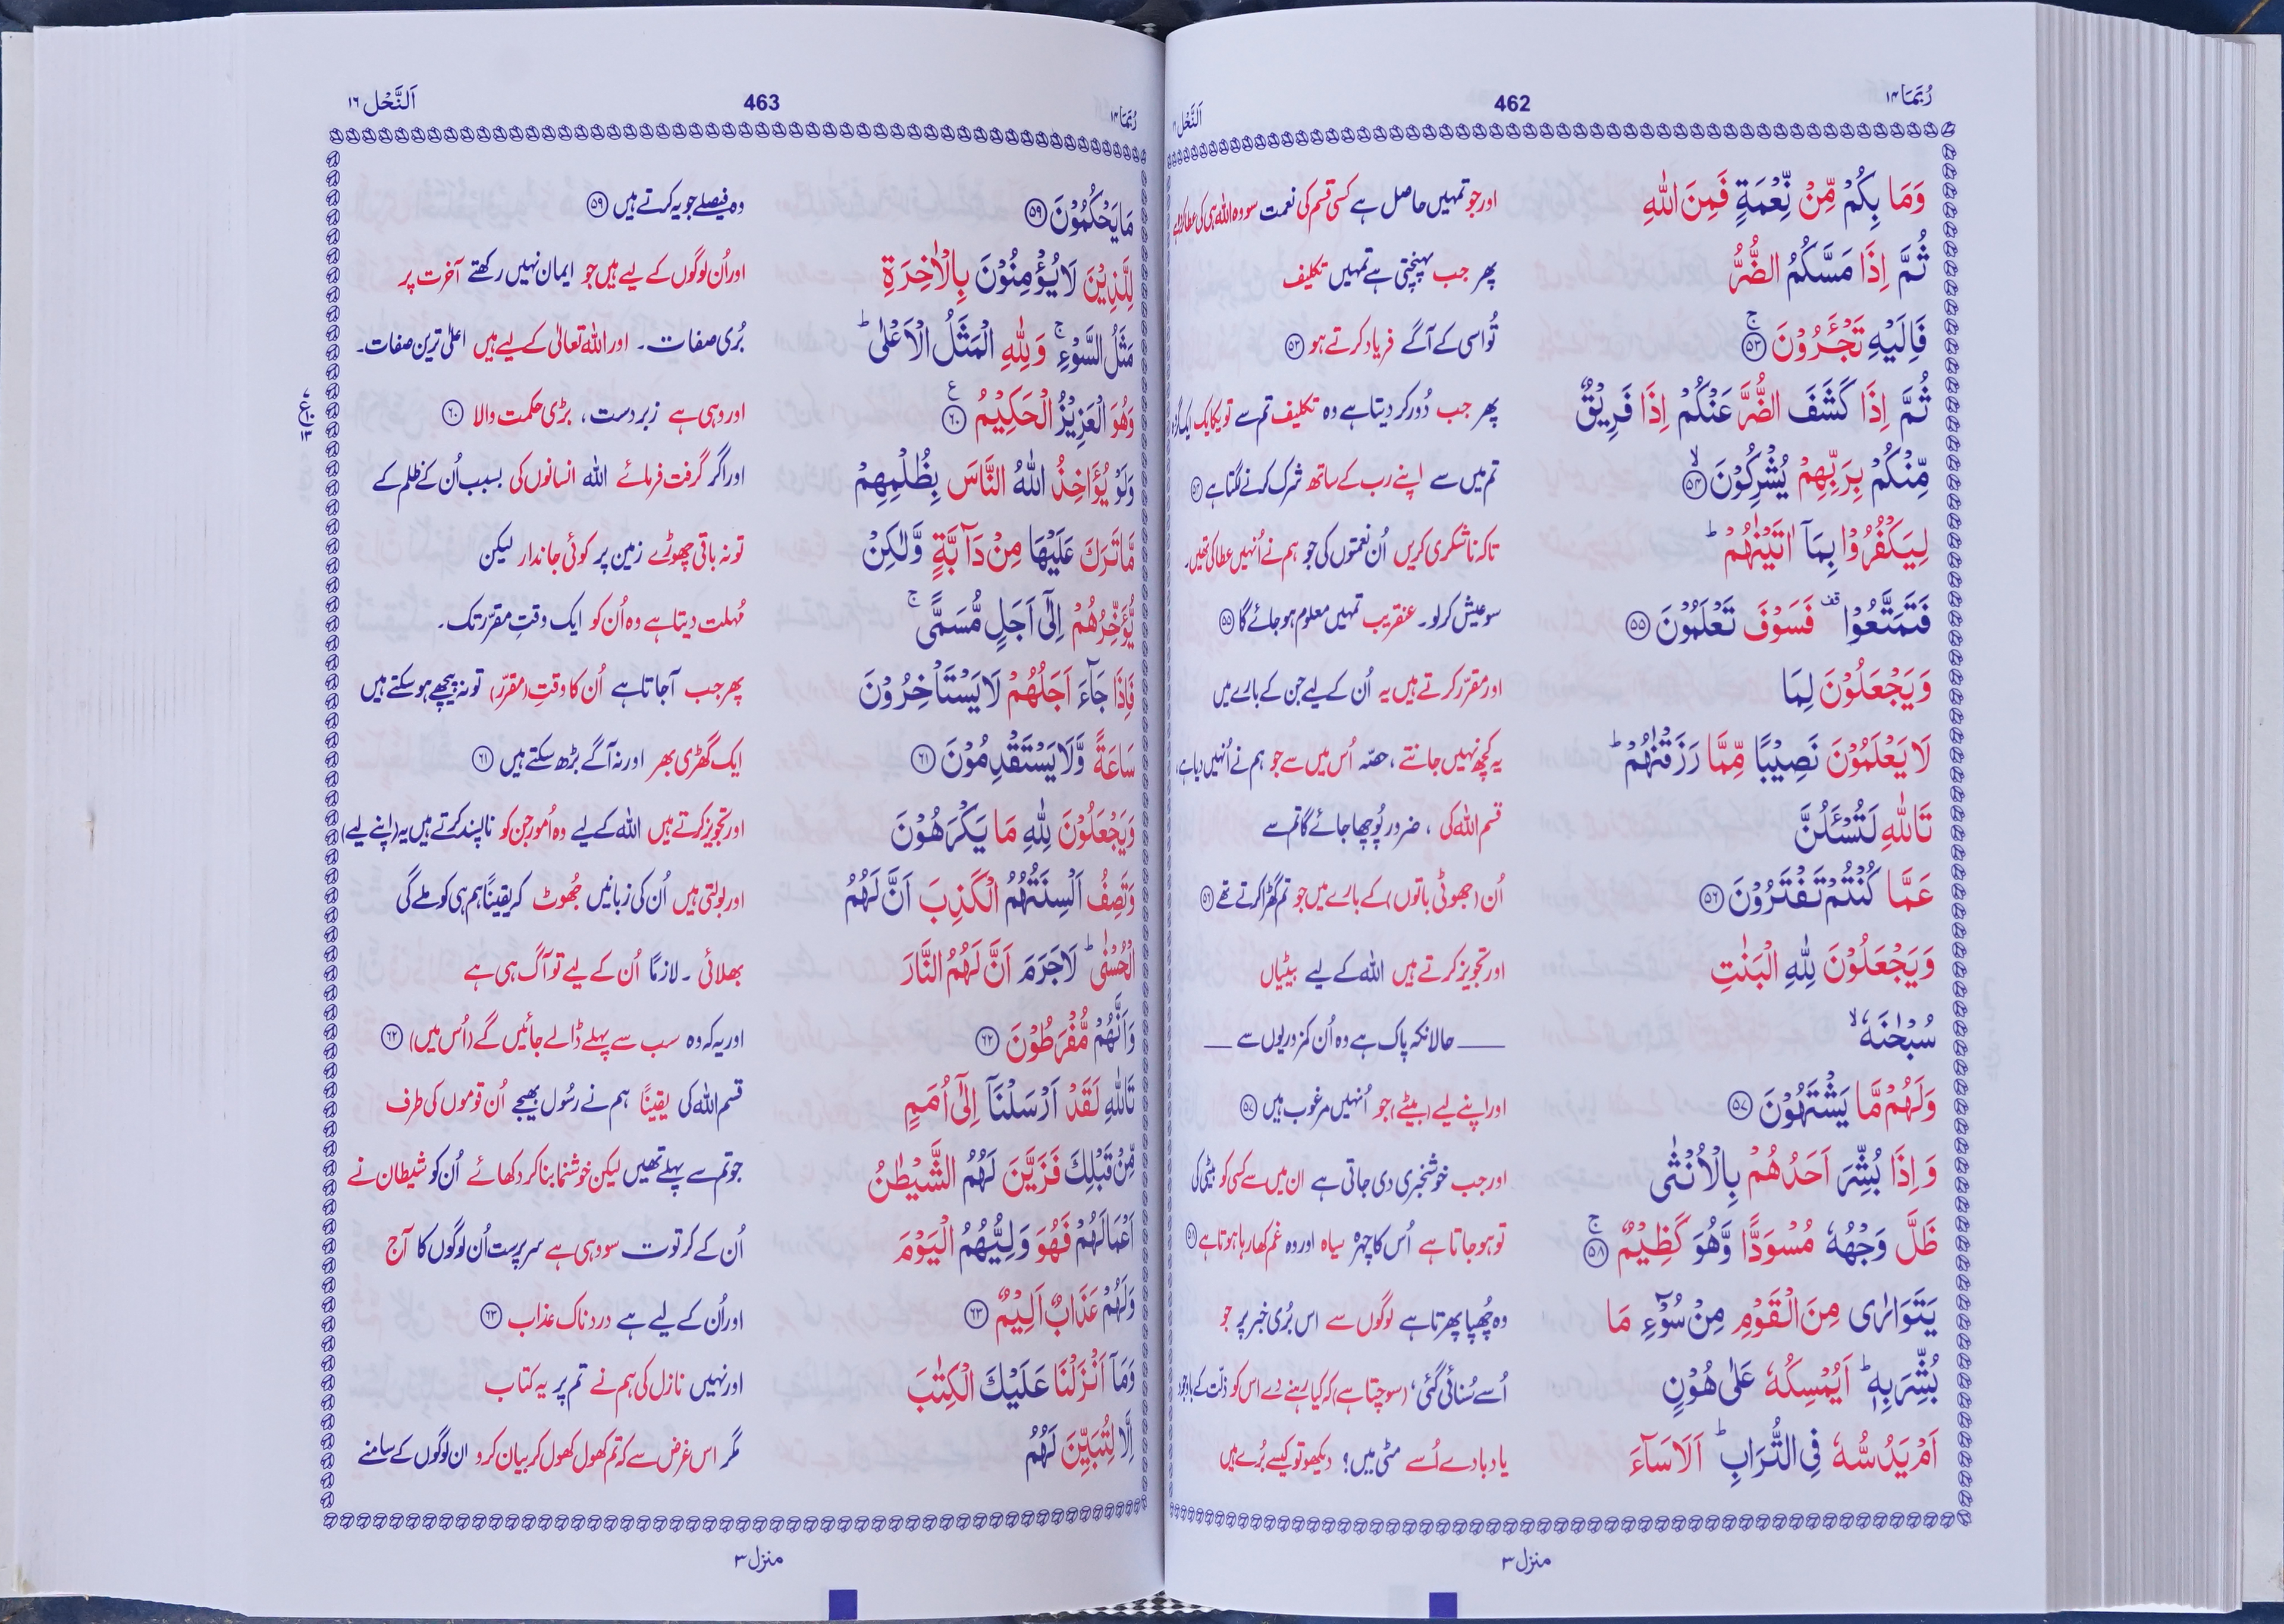 رُبَمَا ۱۴
462
اَلنَّحْل ۱۶
وَمَا بِكُمْ مِّنْ نِّعْمَةٍ فَمِنَ اللّٰهِ اور جو تمہیں حاصل ہے کسی قسم کی نعمت سو وہ اللہ ہی کی عطا کردہ ہے
ثُمَّ اِذَا مَسَّكُمُ الضُّرُّ پھر جب پہنچتی ہے تمہیں تکلیف
فَاِلَيْهِ تَجْـَٔرُوْنَ ۚ ۵۳ تُو اسی کے آگے فریاد کرتے ہو ۵۳
ثُمَّ اِذَا كَشَفَ الضُّرَّ عَنْكُمْ اِذَا فَرِيْقٌ پھر جب دُور کر دیتا ہے وہ تکلیف تم سے تو یکایک ایک گروہ
مِّنْكُمْ بِرَبِّهِمْ يُشْرِكُوْنَ ۙ ۵۴ تم میں سے اپنے رب کے ساتھ شرک کرنے لگتا ہے ۵۴
لِيَكْفُرُوْا بِمَآ اٰتَيْنٰهُمْ ؕ تاکہ ناشکری کریں اُن نعمتوں کی جو ہم نے اُنہیں عطا کی تھیں۔
فَتَمَتَّعُوْا ۫ فَسَوْفَ تَعْلَمُوْنَ ۵۵ سو عیش کر لو۔ عنقریب تمہیں معلوم ہو جائے گا ۵۵
وَيَجْعَلُوْنَ لِمَا اور مقرّر کرتے ہیں یہ اُن کے لیے جن کے بارے میں
لَا يَعْلَمُوْنَ نَصِيْبًا مِّمَّا رَزَقْنٰهُمْ ؕ یہ کچھ نہیں جانتے، حصّہ اُس میں سے جو ہم نے اُنہیں دیا ہے،
تَاللّٰهِ لَتُسْـَٔلُنَّ قسم اللہ کی، ضرور پُوچھا جائے گا تم سے
عَمَّا كُنْتُمْ تَفْتَرُوْنَ ۵۶ اُن (جھوٹی باتوں) کے بارے میں جو تم گھڑا کرتے تھے ۵۶
وَيَجْعَلُوْنَ لِلّٰهِ الْبَنٰتِ اور تجویز کرتے ہیں اللہ کے لیے بیٹیاں
سُبْحٰنَهٗ ۙ — حالانکہ پاک ہے وہ اُن کمزوریوں سے —
وَلَهُمْ مَّا يَشْتَهُوْنَ ۵۷ اور اپنے لیے (بیٹے) جو اُنہیں مرغوب ہیں ۵۷
وَاِذَا بُشِّرَ اَحَدُهُمْ بِالْاُنْثٰى اور جب خوشخبری دی جاتی ہے ان میں سے کسی کو بیٹی کی
ظَلَّ وَجْهُهٗ مُسْوَدًّا وَّهُوَ كَظِيْمٌ ۚ ۵۸ تو ہو جاتا ہے اُس کا چہرہ سیاہ اور وہ غم کھا رہا ہوتا ہے ۵۸
يَتَوَارٰى مِنَ الْقَوْمِ مِنْ سُوْٓءِ مَا وہ چُھپا پھرتا ہے لوگوں سے اس بُری خبر پر جو
بُشِّرَ بِهٖ ؕ اَيُمْسِكُهٗ عَلٰى هُوْنٍ اُسے سُنائی گئی، (سوچتا ہے) کہ کیا رہنے دے اس کو ذلّت کے باوجود
اَمْ يَدُسُّهٗ فِى التُّرَابِ ؕ اَلَا سَآءَ یا دبا دے اُسے مٹی میں؟ دیکھو تو کیسے بُرے ہیں
منزل ۳
رُبَمَا ۱۴
463
اَلنَّحْل ۱۶
مَا يَحْكُمُوْنَ ۵۹ وہ فیصلے جو یہ کرتے ہیں ۵۹
لِلَّذِيْنَ لَا يُؤْمِنُوْنَ بِالْاٰخِرَةِ اور اُن لوگوں کے لیے ہیں جو ایمان نہیں رکھتے آخرت پر
مَثَلُ السَّوْءِ ۚ وَلِلّٰهِ الْمَثَلُ الْاَعْلٰى ؕ بُری صفات۔ اور اللہ تعالٰی کے لیے ہیں اعلیٰ ترین صفات۔
وَهُوَ الْعَزِيْزُ الْحَكِيْمُ ۶۰ اور وہی ہے زبردست، بڑی حکمت والا ۶۰
وَلَوْ يُؤَاخِذُ اللّٰهُ النَّاسَ بِظُلْمِهِمْ اور اگر گرفت فرمائے اللہ انسانوں کی بسبب اُن کے ظلم کے
مَّا تَرَكَ عَلَيْهَا مِنْ دَآبَّةٍ وَّلٰكِنْ تو نہ باقی چھوڑے زمین پر کوئی جاندار لیکن
يُّؤَخِّرُهُمْ اِلٰٓى اَجَلٍ مُّسَمًّى ۚ مُہلت دیتا ہے وہ اُن کو ایک وقتِ مقرّر تک۔
فَاِذَا جَآءَ اَجَلُهُمْ لَا يَسْتَاْخِرُوْنَ پھر جب آ جاتا ہے اُن کا وقت (مقرّر) تو نہ پیچھے ہو سکتے ہیں
سَاعَةً وَّلَا يَسْتَقْدِمُوْنَ ۶۱ ایک گھڑی بھر اور نہ آگے بڑھ سکتے ہیں ۶۱
وَيَجْعَلُوْنَ لِلّٰهِ مَا يَكْرَهُوْنَ اور تجویز کرتے ہیں اللہ کے لیے وہ اُمور جن کو ناپسند کرتے ہیں یہ (اپنے لیے)
وَتَصِفُ اَلْسِنَتُهُمُ الْكَذِبَ اَنَّ لَهُمُ اور بولتی ہیں اُن کی زبانیں جُھوٹ کہ یقیناً ہم ہی کو ملے گی
الْحُسْنٰى ؕ لَا جَرَمَ اَنَّ لَهُمُ النَّارَ بھلائی۔ لازماً اُن کے لیے تو آگ ہی ہے
وَاَنَّهُمْ مُّفْرَطُوْنَ ۶۲ اور یہ کہ وہ سب سے پہلے ڈالے جائیں گے (اُس میں) ۶۲
تَاللّٰهِ لَقَدْ اَرْسَلْنَآ اِلٰٓى اُمَمٍ قسم اللہ کی یقیناً ہم نے رسُول بھیجے اُن قوموں کی طرف
مِّنْ قَبْلِكَ فَزَيَّنَ لَهُمُ الشَّيْطٰنُ جو تم سے پہلے تھیں لیکن خوشنما بنا کر دکھائے اُن کو شیطان نے
اَعْمَالَهُمْ فَهُوَ وَلِيُّهُمُ الْيَوْمَ اُن کے کرتوت سو وہی ہے سرپرست اُن لوگوں کا آج
وَلَهُمْ عَذَابٌ اَلِيْمٌ ۶۳ اور اُن کے لیے ہے دردناک عذاب ۶۳
وَمَآ اَنْزَلْنَا عَلَيْكَ الْكِتٰبَ اور نہیں نازل کی ہم نے تم پر یہ کتاب
اِلَّا لِتُبَيِّنَ لَهُمُ مگر اس غرض سے کہ تم کھول کھول کر بیان کرو ان لوگوں کے سامنے
منزل ۳